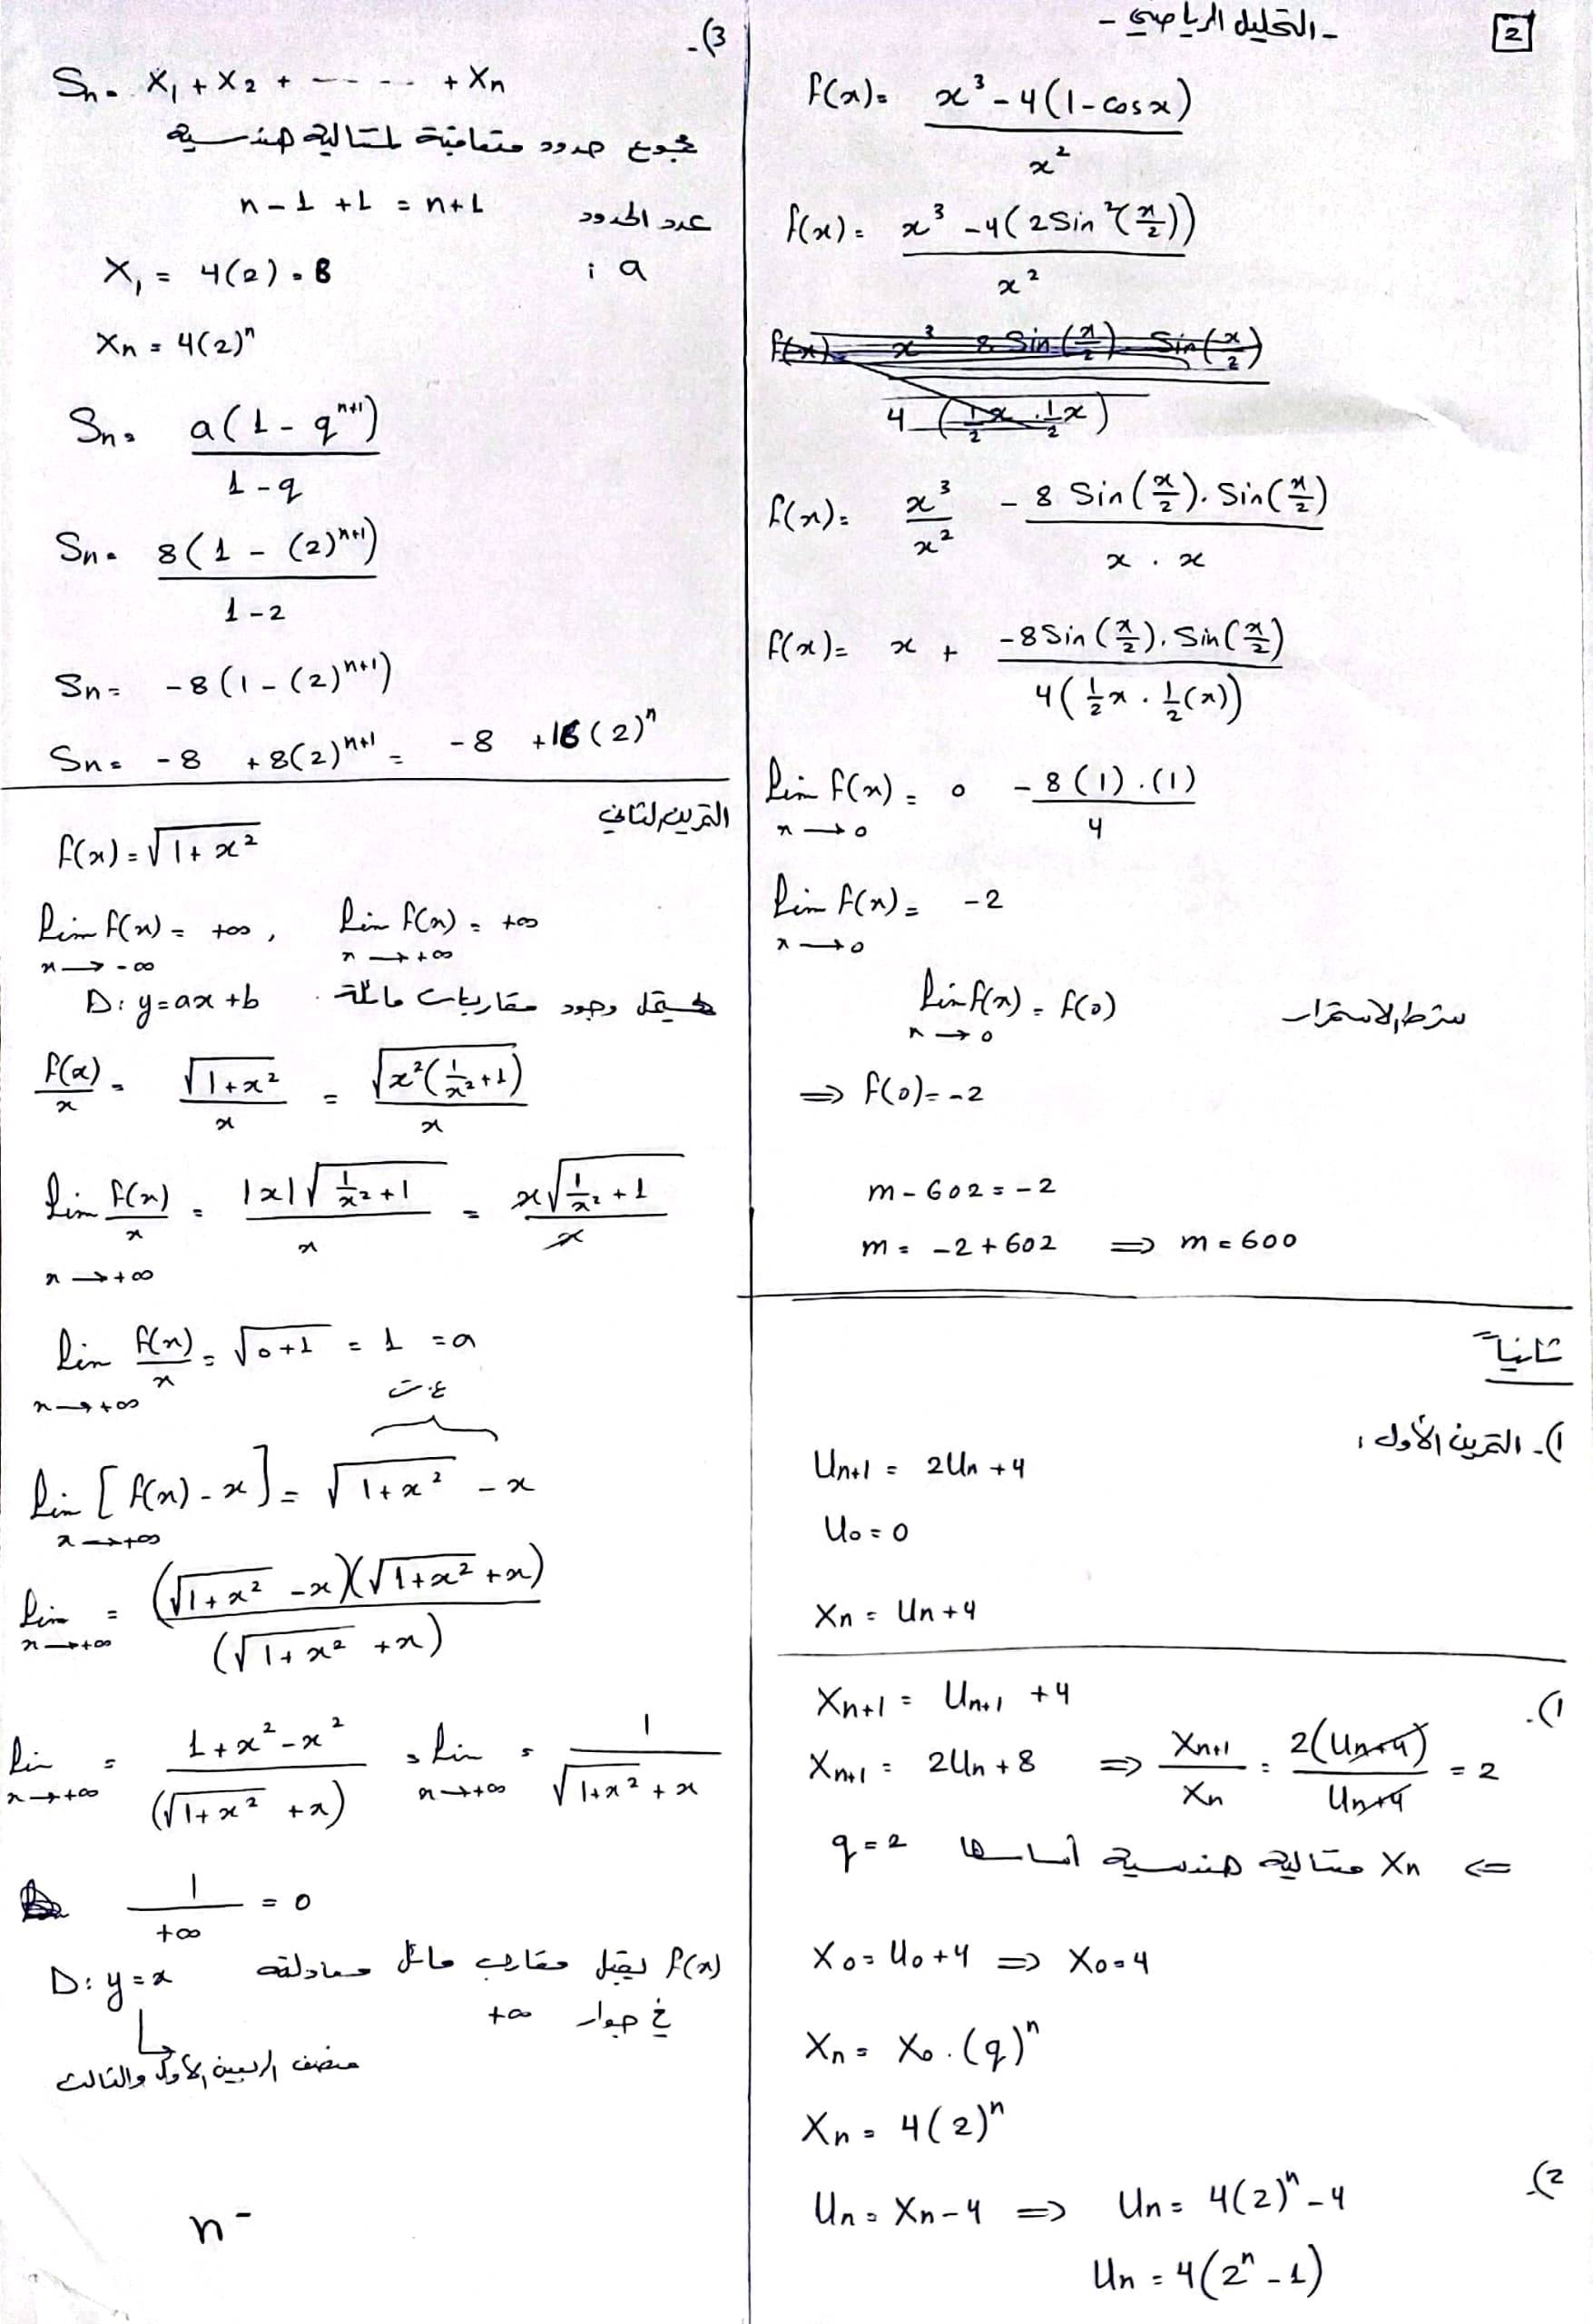 2
- التحليل الرياضي -
f(x) = x³ - 4(1 - cosx) / x²
f(x) = x³ - 4(2 Sin²(x/2)) / x²
f(x) = x³/x² - 8 Sin(x/2) . Sin(x/2) / x . x
f(x) = x + -8 Sin(x/2) . Sin(x/2) / 4(1/2 x . 1/2 (x))
lim f(x) = 0 - 8(1).(1) / 4
x → 0
lim f(x) = -2
x → 0
شرط الاستمرار lim f(x) = f(0)
x → 0
⇒ f(0) = -2
m - 602 = -2
m = -2 + 602 ⇒ m = 600
ثانياً
1)- التمرين الأول :
Un+1 = 2Un + 4
U0 = 0
Xn = Un + 4
1)- Xn+1 = Un+1 + 4
Xn+1 = 2Un + 8 ⇒ Xn+1 / Xn = 2(Un+4) / Un+4 = 2
⇐ Xn متتالية هندسية أساسها q = 2
X0 = U0 + 4 ⇒ X0 = 4
Xn = X0 . (q)ⁿ
Xn = 4(2)ⁿ
2)- Un = Xn - 4 ⇒ Un = 4(2)ⁿ - 4
Un = 4(2ⁿ - 1)
3)-
Sn = X1 + X2 + - - - - - + Xn
مجموع حدود متعاقبة لمتتالية هندسية
عدد الحدود n - 1 + 1 = n + 1
a : X1 = 4(2) = 8
Xn = 4(2)ⁿ
Sn = a(1 - qⁿ⁺¹) / 1 - q
Sn = 8(1 - (2)ⁿ⁺¹) / 1 - 2
Sn = -8(1 - (2)ⁿ⁺¹)
Sn = -8 + 8(2)ⁿ⁺¹ = -8 + 16(2)ⁿ
التمرين الثاني
f(x) = √(1 + x²)
lim f(x) = +∞ , lim f(x) = +∞
x → -∞ x → +∞
وجود مقاربات مائلة . D: y = ax + b
f(x)/x = √(1 + x²) / x = √(x²(1/x² + 1)) / x
lim f(x)/x = |x|√(1/x² + 1) / x = x√(1/x² + 1) / x
x → +∞
lim f(x)/x = √(0+1) = 1 = a
x → +∞
ع.ت
lim [f(x) - x] = √(1 + x²) - x
x → +∞
lim = (√(1 + x²) - x)(√(1 + x²) + x) / (√(1 + x²) + x)
x → +∞
lim = 1 + x² - x² / (√(1 + x²) + x) = lim = 1 / √(1 + x²) + x
x → +∞ x → +∞
1 / +∞ = 0
f(x) يقبل مقارب مائل معادلته D: y = x
في جوار +∞
منصف الربعين الأول والثالث
n -